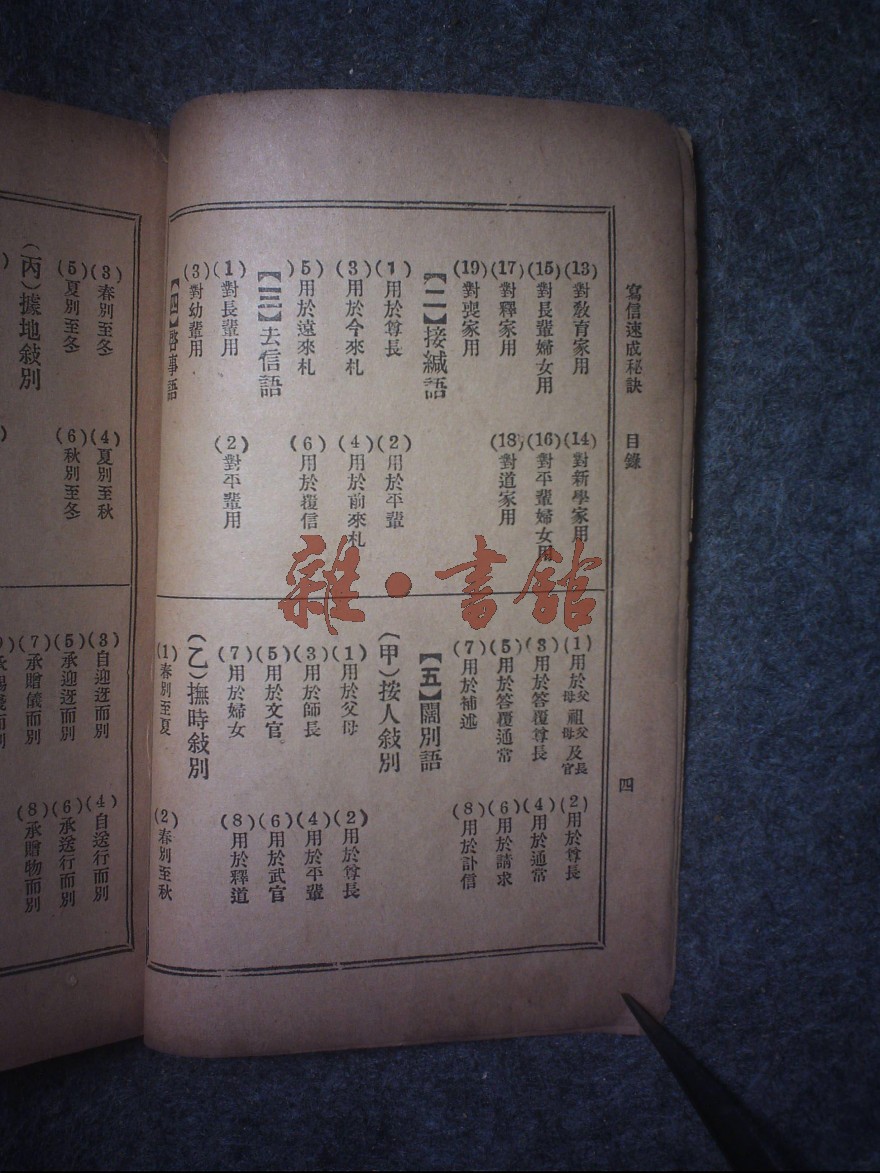 寫信速成秘訣 目錄 四
(13)對教育家用 (14)對新學家用
(15)對長輩婦女用 (16)對平輩婦女用
(17)對釋家用 (18)對道家用
(19)對喪家用
【二】接緘語
(1)用於尊長 (2)用於平輩
(3)用於今來札 (4)用於前來札
(5)用於遠來札 (6)用於覆信
【三】去信語
(1)對長輩用 (2)對平輩用
(3)對幼輩用
【四】啓事語
(1)用於父母祖父母及長官 (2)用於尊長
(3)用於答覆尊長 (4)用於通常
(5)用於答覆通常 (6)用於請求
(7)用於補述 (8)用於訃信
【五】闊別語
(甲)按人敍別
(1)用於父母 (2)用於尊長
(3)用於師長 (4)用於平輩
(5)用於文官 (6)用於武官
(7)用於婦女 (8)用於釋道
(乙)撫時敍別
(1)春別至夏 (2)春別至秋
(3)春別至冬 (4)夏別至秋
(5)夏別至冬 (6)秋別至冬
(丙)據地敍別
(3)自迎迓而別 (4)自送行而別
(5)承迎迓而別 (6)承送行而別
(7)承贈儀而別 (8)承贈物而別
雜·書館